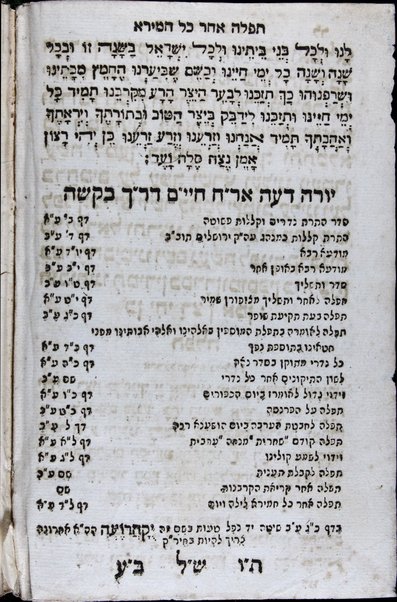 תפלה אחר כל חמירא
לנו ולכל בני ביתינו ולכל ישראל בשנה זו ובכל
שנה ושנה כל ימי חיינו וכשם שביערנו החמץ מבתינו
ושרפנוהו כך תזכנו לבער היצר הרע מקרבנו תמיד כל
ימי חיינו ותזכנו לידבק ביצר הטוב ובתורתך ויראתך
ואהבתך תמיד אנחנו וזרענו וזרע זרענו כן יהי רצון
אמן נצח סלה ועד:
יורה דעה אר״ח חיי״ם דר״ך בקשה
סדר התרת נדרים וקללות פשוטה דף ב׳ ע״א
התרת קללות במנהג עה״ק ירושלים תוב״ב דף ד׳ ע״ב
מודעא רבא דף יו״ד ע״א
מודעא רבא באופן אחר דף י״ב ע״ב
סדר תשליך דף ט״ו ע״ב
תפלה לאחר ותשליך מנופורן שמיר דף י״ט ע״א
תפלה בעת תקיעת שופר דף כ״ג ע״ב
תפלה לאומרה בתפלת המוספין באלהינו ואלהי אבותינו מפני
חטאינו בתוספת נפך דף כ״ד ע״א
כל נדרי מתוקן בסדר נאה דף כ״ה ע״א
לשון התיקונים אחר כל נדרי שם ע״ב
וידוי גדול לאומרו ביום הכפורים דף כ״ו ע״א
תפלה על הפרנסה דף כ״ט ע״ב
תפלה לחכמת הערבה ביום הושענא רבה דף ל׳ ע״ב
תפלה קודם ״שחרית ״מנחה ״ערבית דף ל״א ע״א
וידוי לשמע קולינו דף ל״ג ע״א
תפלה לקבלת תענית שם ע״ב
תפלה אחר קריאת הקרבנות שם
תפלה אחר כל חמירא לילה ויום דף ל״ד ע״א
בדף כ״ג ע״ב שיטה יד נפל טעות בשם זה יקהרועה הה״א אחרונה
צריך להיות בחיר״ק
ת״ו ש״ל ב״ע